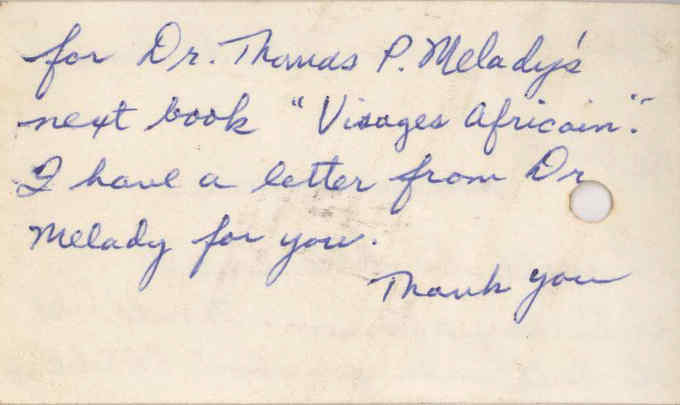 for Dr. Thomas P. Melady's
next book "Visages Africain".
I have a letter from Dr
Melady for you.
Thank you